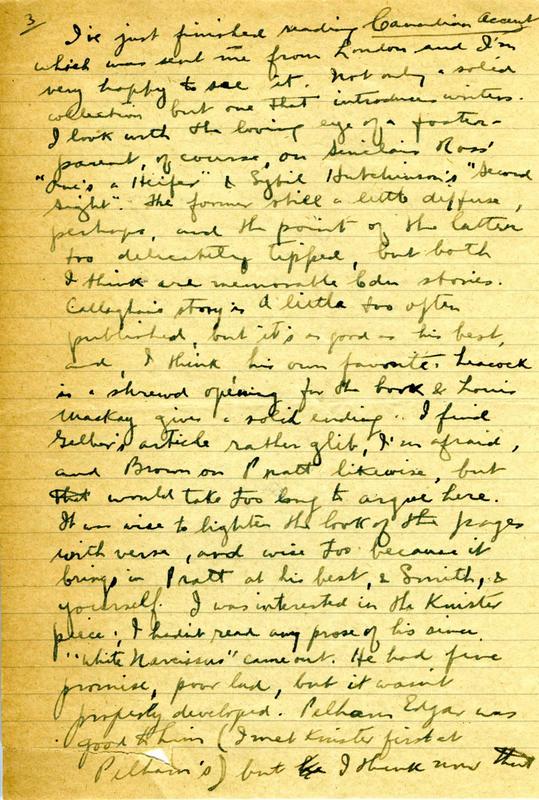 3
I've just finished reading Canadian Accent
which was sent me from London and I'm
very happy to see it. Not only a solid
collection but one that introduces writers.
I look with the loving eye of a foster-
parent, of course, on Sinclair Ross'
"One's a Heifer" & Sybil Hutchinson's "Second
Sight". The former still a little diffuse,
perhaps, and the point of the latter
too delicately tipped, but both
I think are memorable stories.
Callaghan's story is a little too often
published, but it's as good as his best,
and, I think his own favorite. Leacock
is a shrewd opening for the book & Louis
Mackay gives a solid ending. I find
Gelber's article rather glib, I'm afraid,
and Brown on Pratt likewise, but
that would take too long to argue here.
It was wise to lighten the look of the pages
with verse, and wise too because it
brings in Pratt at his best, & Smith, &
yourself. I was interested in the Knister
piece; I hadn't read any prose of his since
"White Narcissus" came out. He had fine
promise, poor lad, but it wasn't
properly developed. Pelham Edgar was
good to him (I met Knister first at
Pelham's) but I think now that